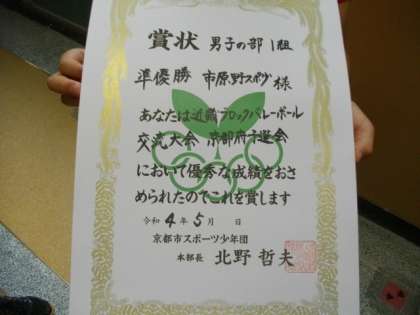 賞状 男子の部 1組
準優勝 市原野スポ少 様
あなたは近畿ブロックバレーボール
交流大会 京都府予選会
において優秀な成績をおさ
められたのでこれを賞します
令和4年5月 日
京都市スポーツ少年団
本部長 北野 哲夫